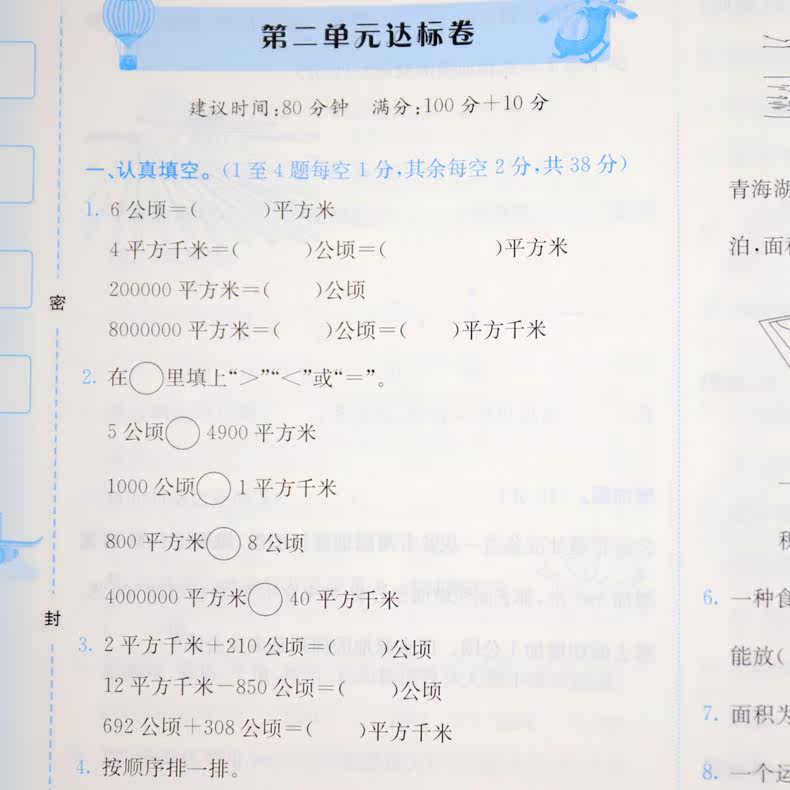 第二单元达标卷
建议时间:80分钟 满分:100分+10分
一、认真填空。(1至4题每空1分,其余每空2分,共38分)
1. 6公顷=( )平方米
4平方千米=( )公顷=( )平方米
200000平方米=( )公顷
8000000平方米=( )公顷=( )平方千米
2. 在○里填上“>”“<”或“=”。
5公顷○4900平方米
1000公顷○1平方千米
800平方米○8公顷
4000000平方米○40平方千米
3. 2平方千米+210公顷=( )公顷
12平方千米-850公顷=( )公顷
692公顷+308公顷=( )平方千米
4. 按顺序排一排。
密
封
青海湖
泊,面积
积
6. 一种食
能放(
7. 面积为
8. 一个运